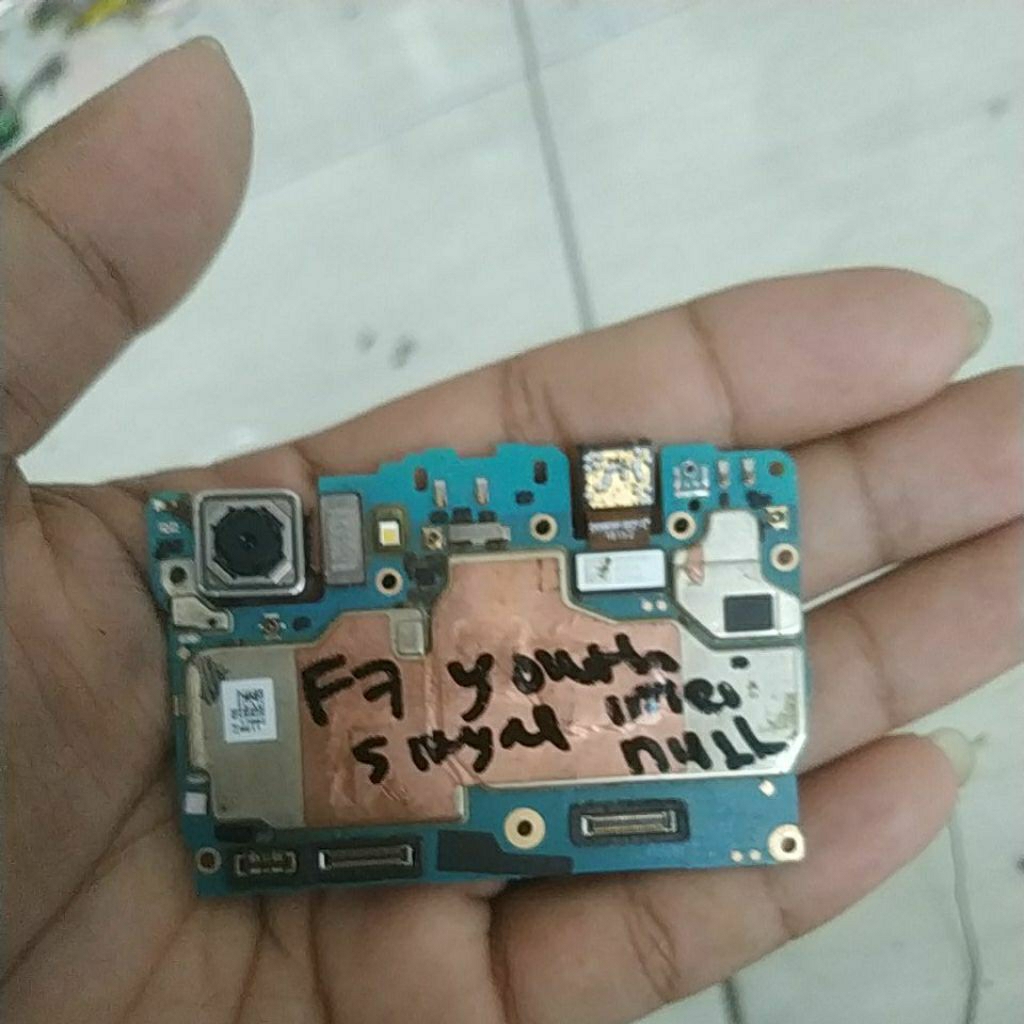 F7 youth
sinyal imei
null